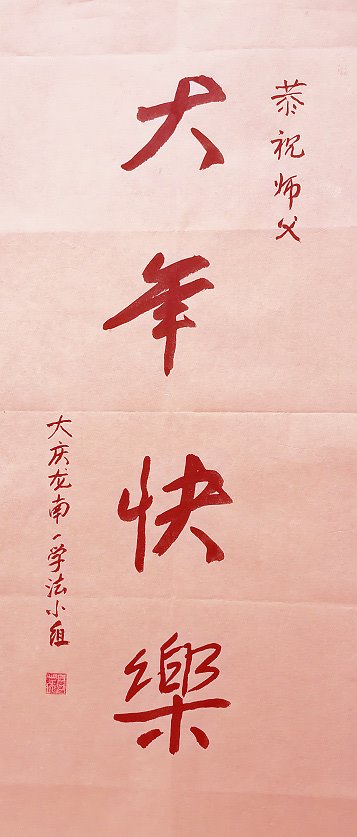 恭祝师父
大年快樂
大庆龙南一学法小组